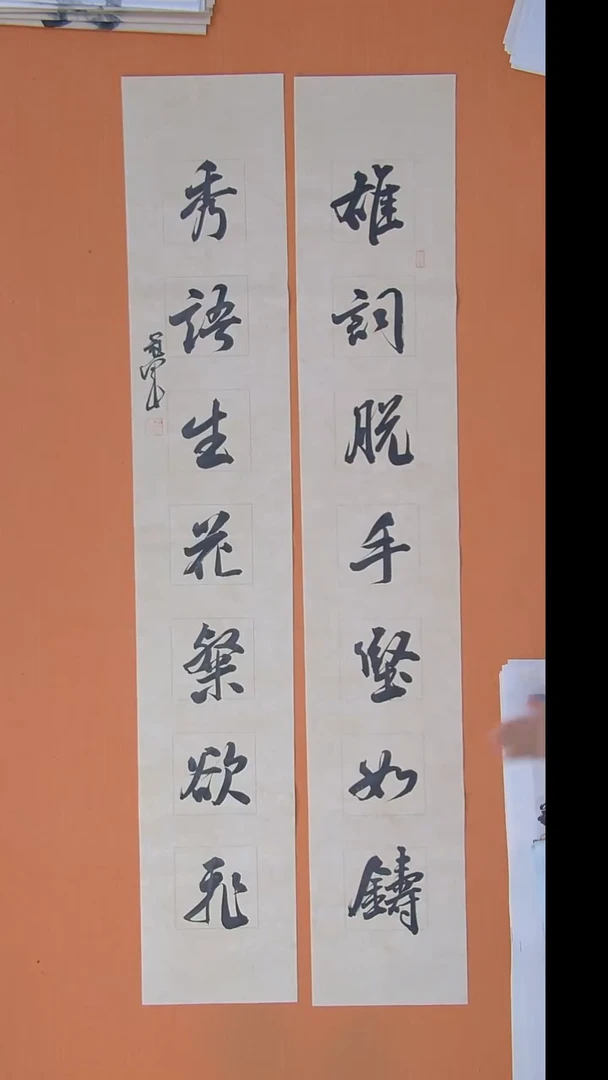 雄詞脱手堅如鑄
秀語生花粲欲飛